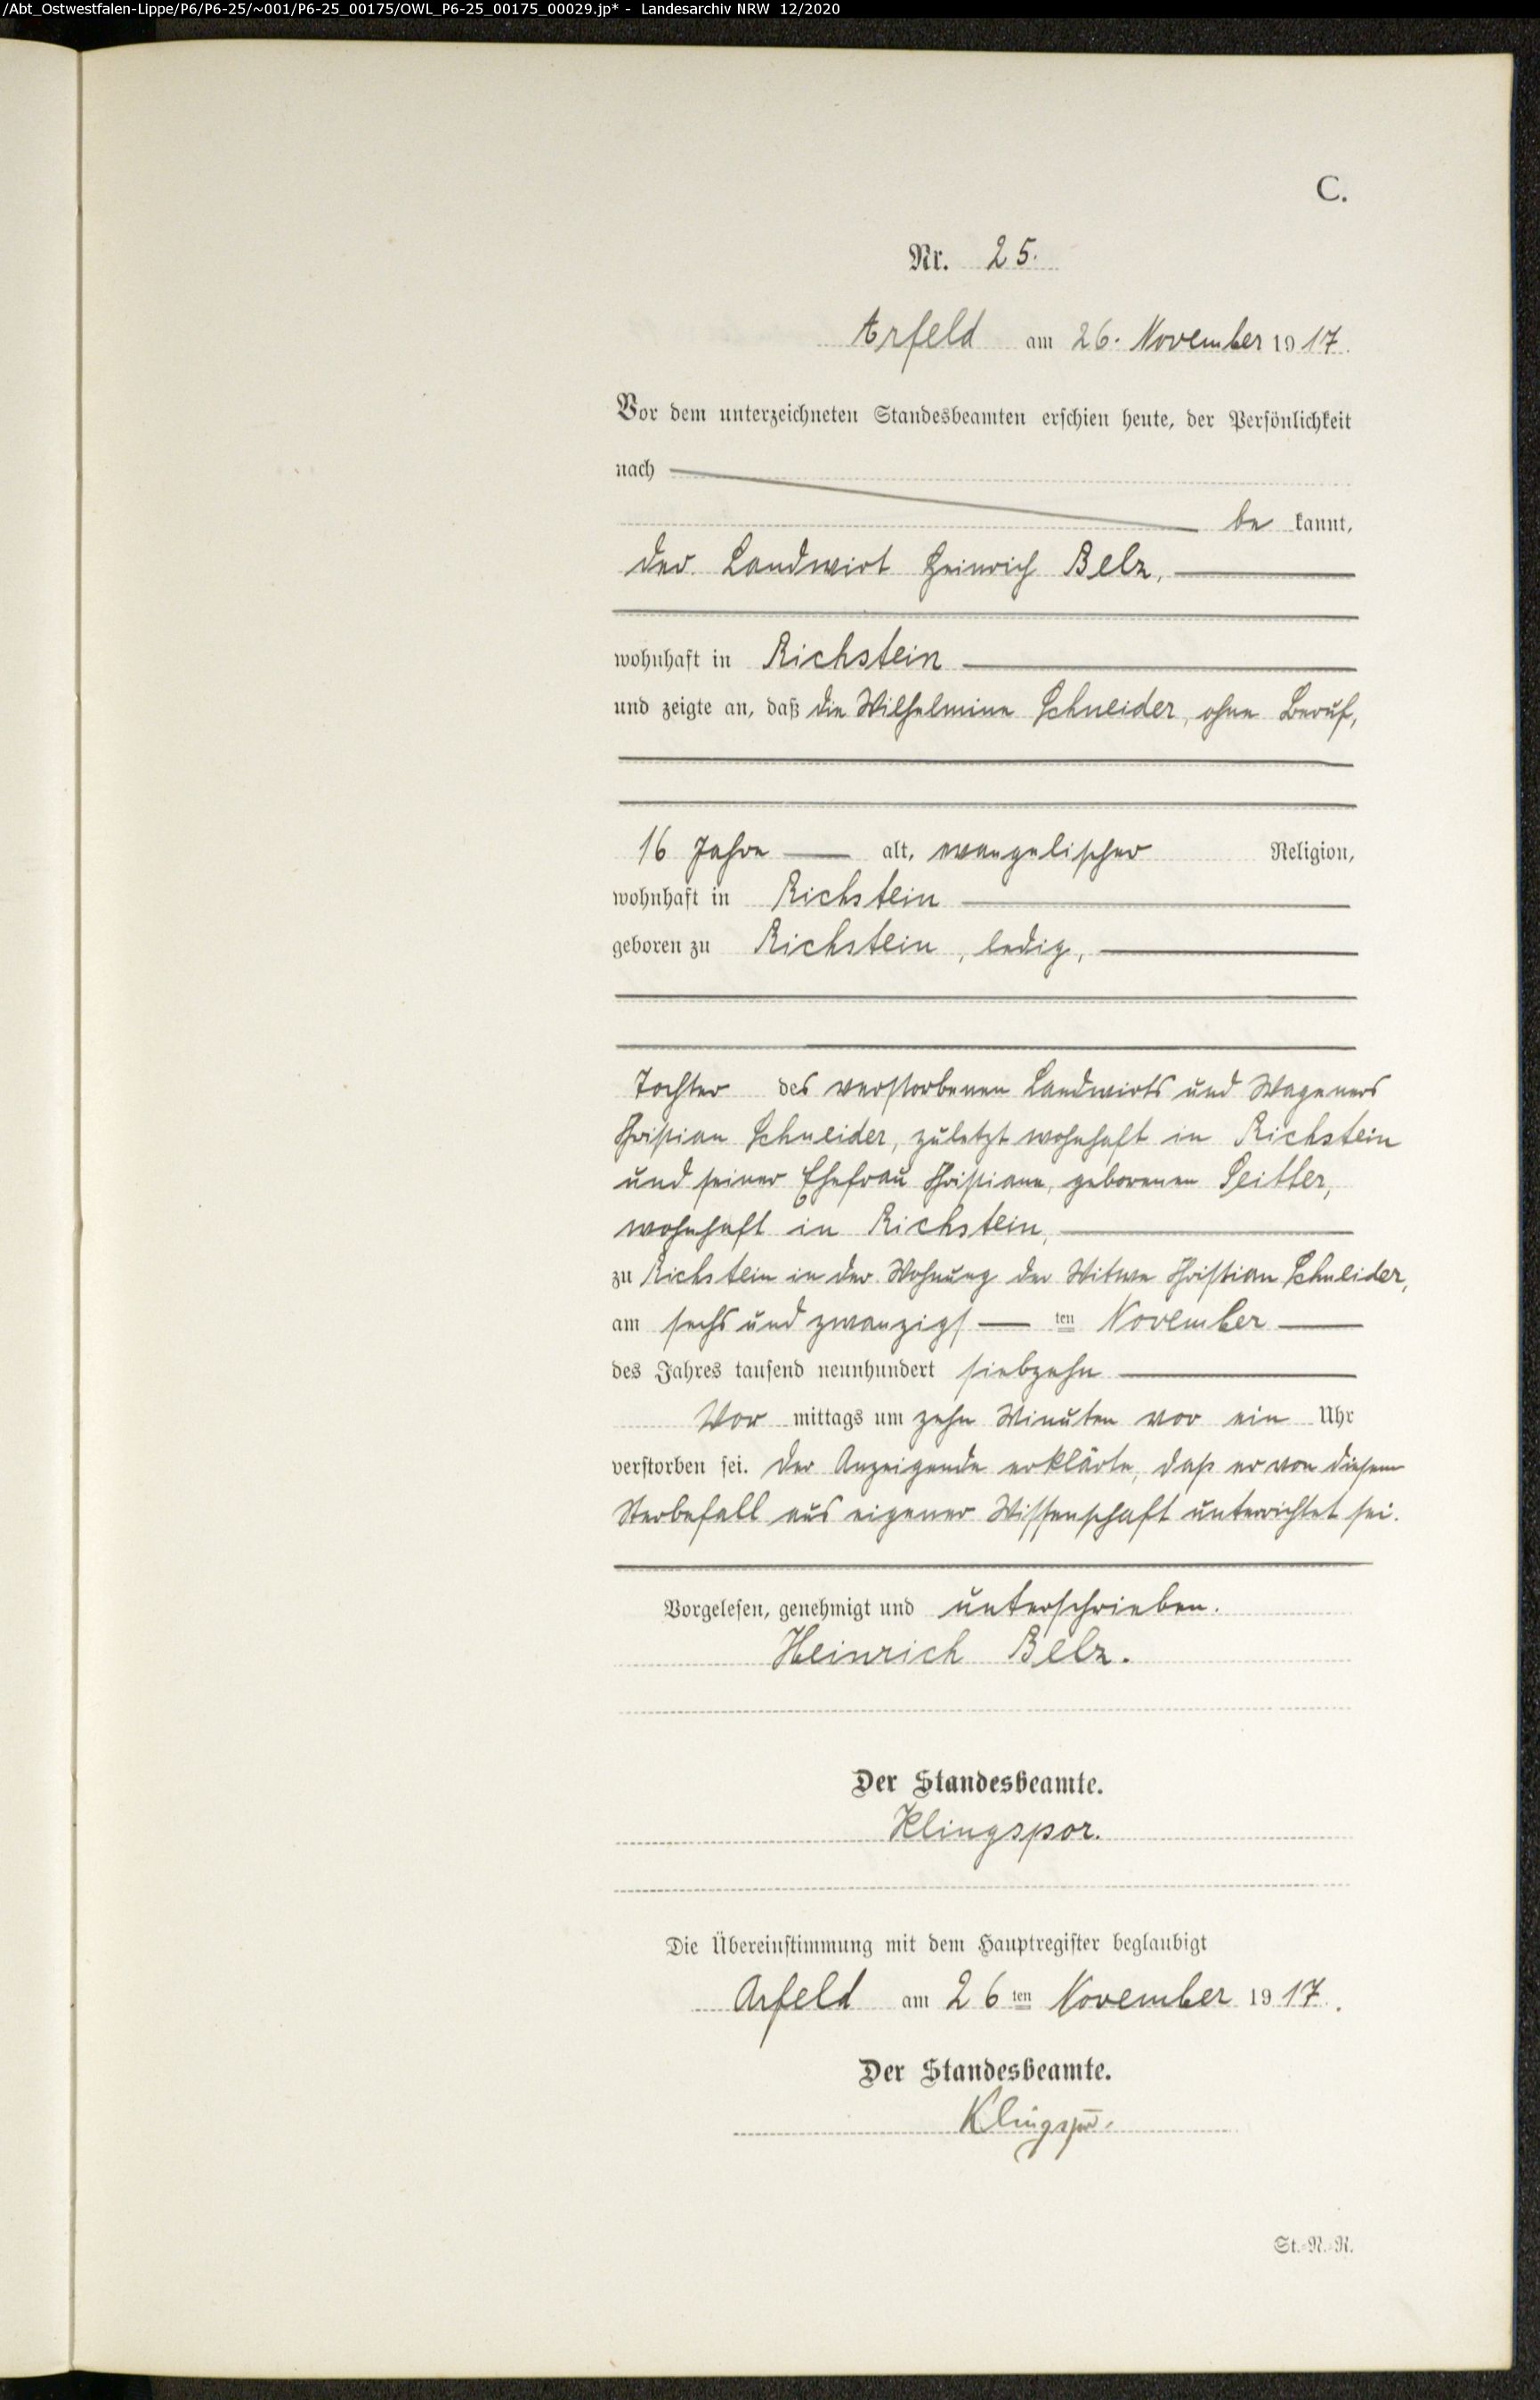 /Abt_Ostwestfalen-Lippe/P6/P6-25/~001/P6-25_00175/OWL_P6-25_00175_00029.jp* - Landesarchiv NRW 12/2020
C.
Nr. 25.
Arfeld am 26. November 1917.
Vor dem unterzeichneten Standesbeamten erschien heute, der Persönlichkeit
nach
be kannt,
der Landwirt Heinrich Belz,
wohnhaft in Richstein
und zeigte an, daß die Wilhelmine Schneider, ohne Beruf,
16 Jahre alt, evangelischer Religion,
wohnhaft in Richstein
geboren zu Richstein, ledig,
Tochter des verstorbenen Landwirts und Wageners
Christian Schneider, zuletzt wohnhaft in Richstein
und seiner Ehefrau Christiane, geborenen
wohnhaft in Richstein,
zu Richstein in der Wohnung der Witwe Christian Schneider,
am sechs und zwanzigsten November
des Jahres tausend neunhundert siebzehn
Vor mittags um zehn Minuten vor ein Uhr
verstorben sei. Der Anzeigende erklärte, daß er von diesem
Sterbefall aus eigener Wissenschaft unterrichtet sei.
Vorgelesen, genehmigt und unterschrieben.
Heinrich Belz.
Der Standesbeamte.
Klingspor.
Die Übereinstimmung mit dem Hauptregister beglaubigt
Arfeld am 26ten November 1917.
Der Standesbeamte.
Klingspor.
St.-N.-R.